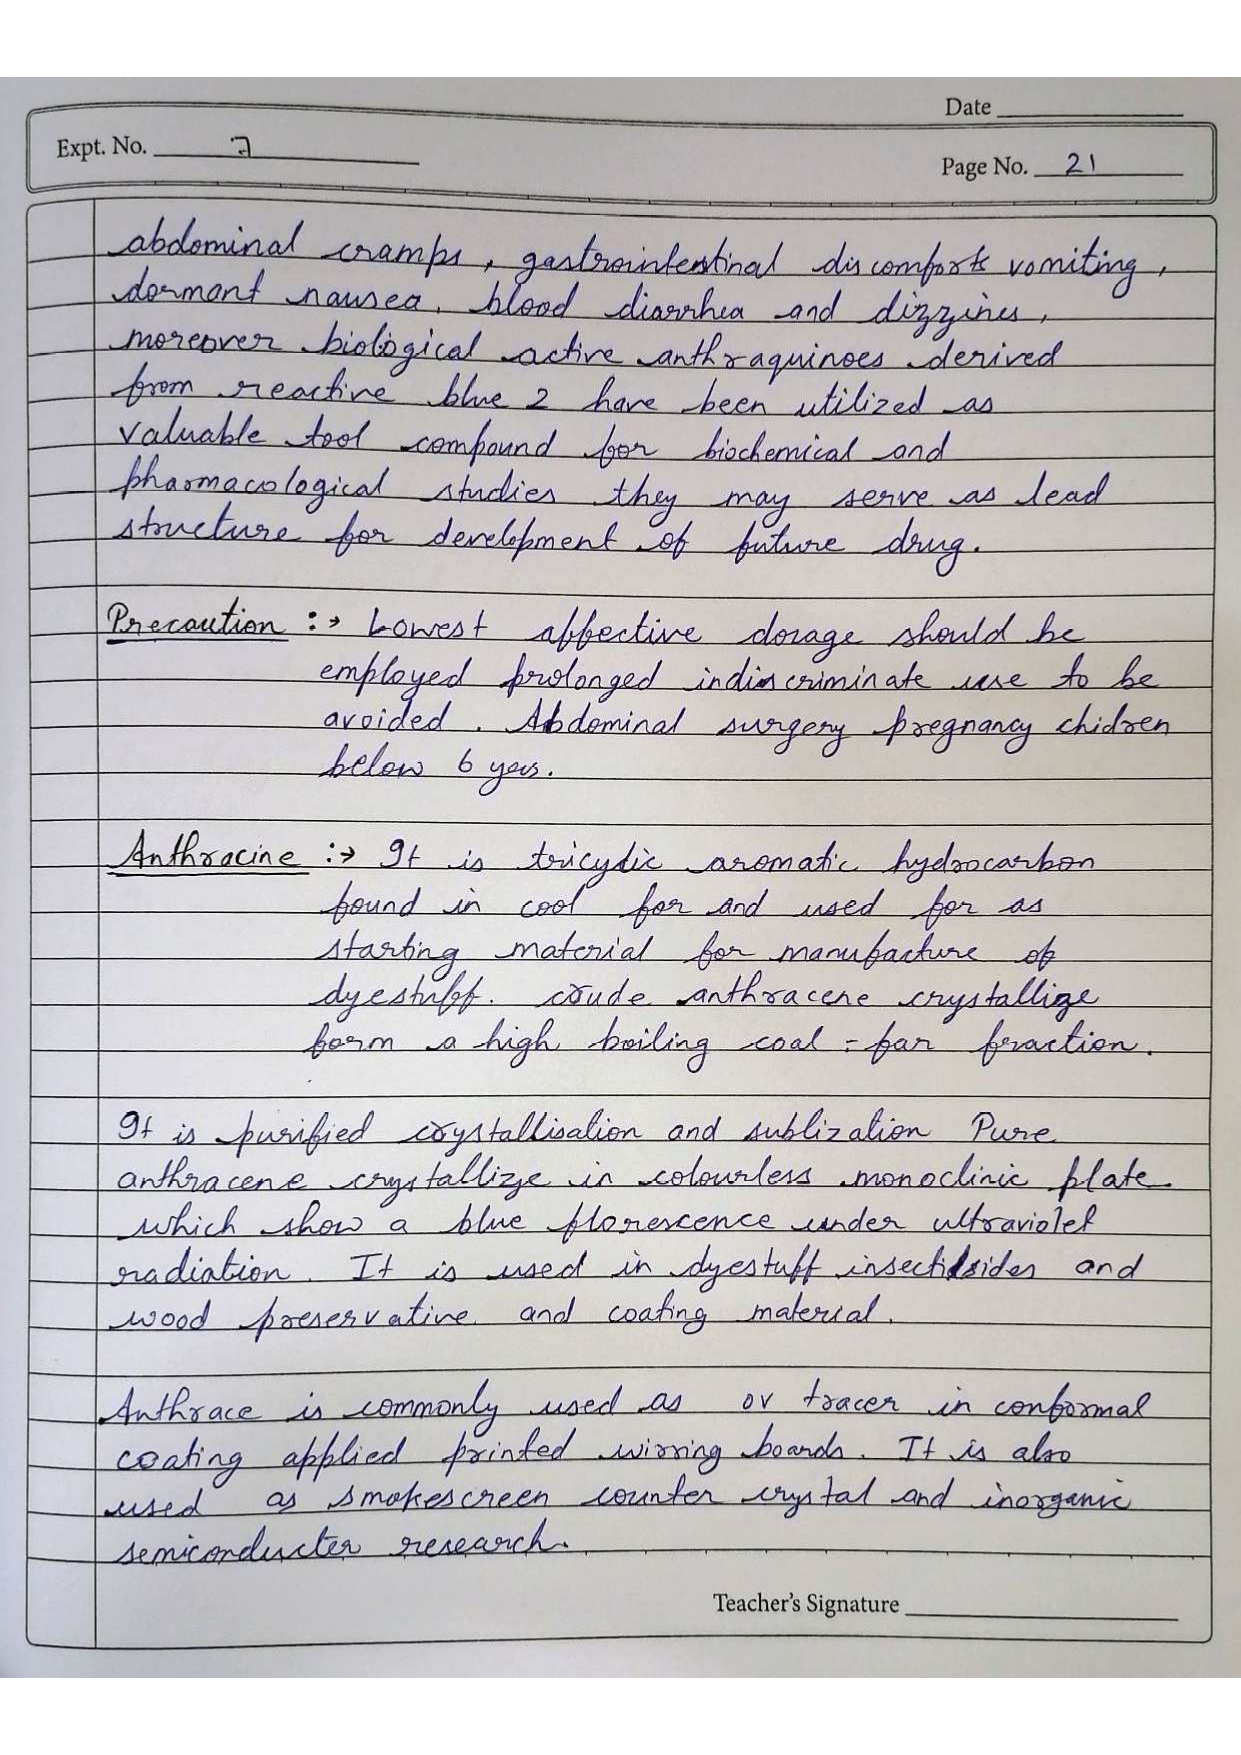 Date
Expt. No. 7
Page No. 21
abdominal cramps, gastrointentinal discomforts vomiting,
dormant nausea, blood diarrhea and dizzines,
moreover biological active anthraquinoes derived
from reactive blue 2 have been utilized as
valuable tool compound for biochemical and
pharmacological studies they may serve as lead
structure for development of future drug.
Precaution :→ Lowest affective dosage should be
employed prolonged indiscriminate use to be
avoided. Abdominal surgery pregnancy chidren
below 6 yers.
Anthracine :→ It is tricyclic aromatic hydrocarbon
found in cool for and used for as
starting material for manufacture of
dyestuff. crude anthracene crystallize
form a high boiling coal-far fraction.
It is purified crystallisation and sublization Pure
anthracene crystallize in colourless monoclinic plate
which show a blue florescence under ultraviolet
radiation. It is used in dyestuff and
wood preservative and coating material.
Anthrace is commonly used as ov tracer in conformal
coating applied printed wirring boards. It is also
used as smokescreen counter crystal and inorganic
semiconducter research.
Teacher's Signature